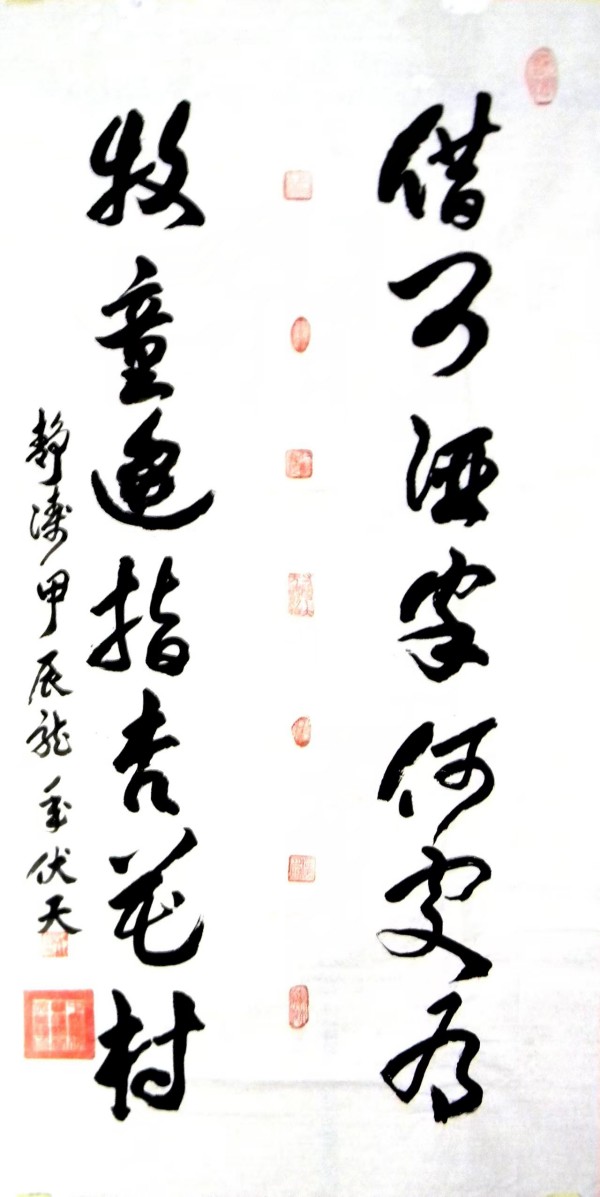 借问酒家何处有
牧童遥指杏花村
静涛甲辰龙年伏天